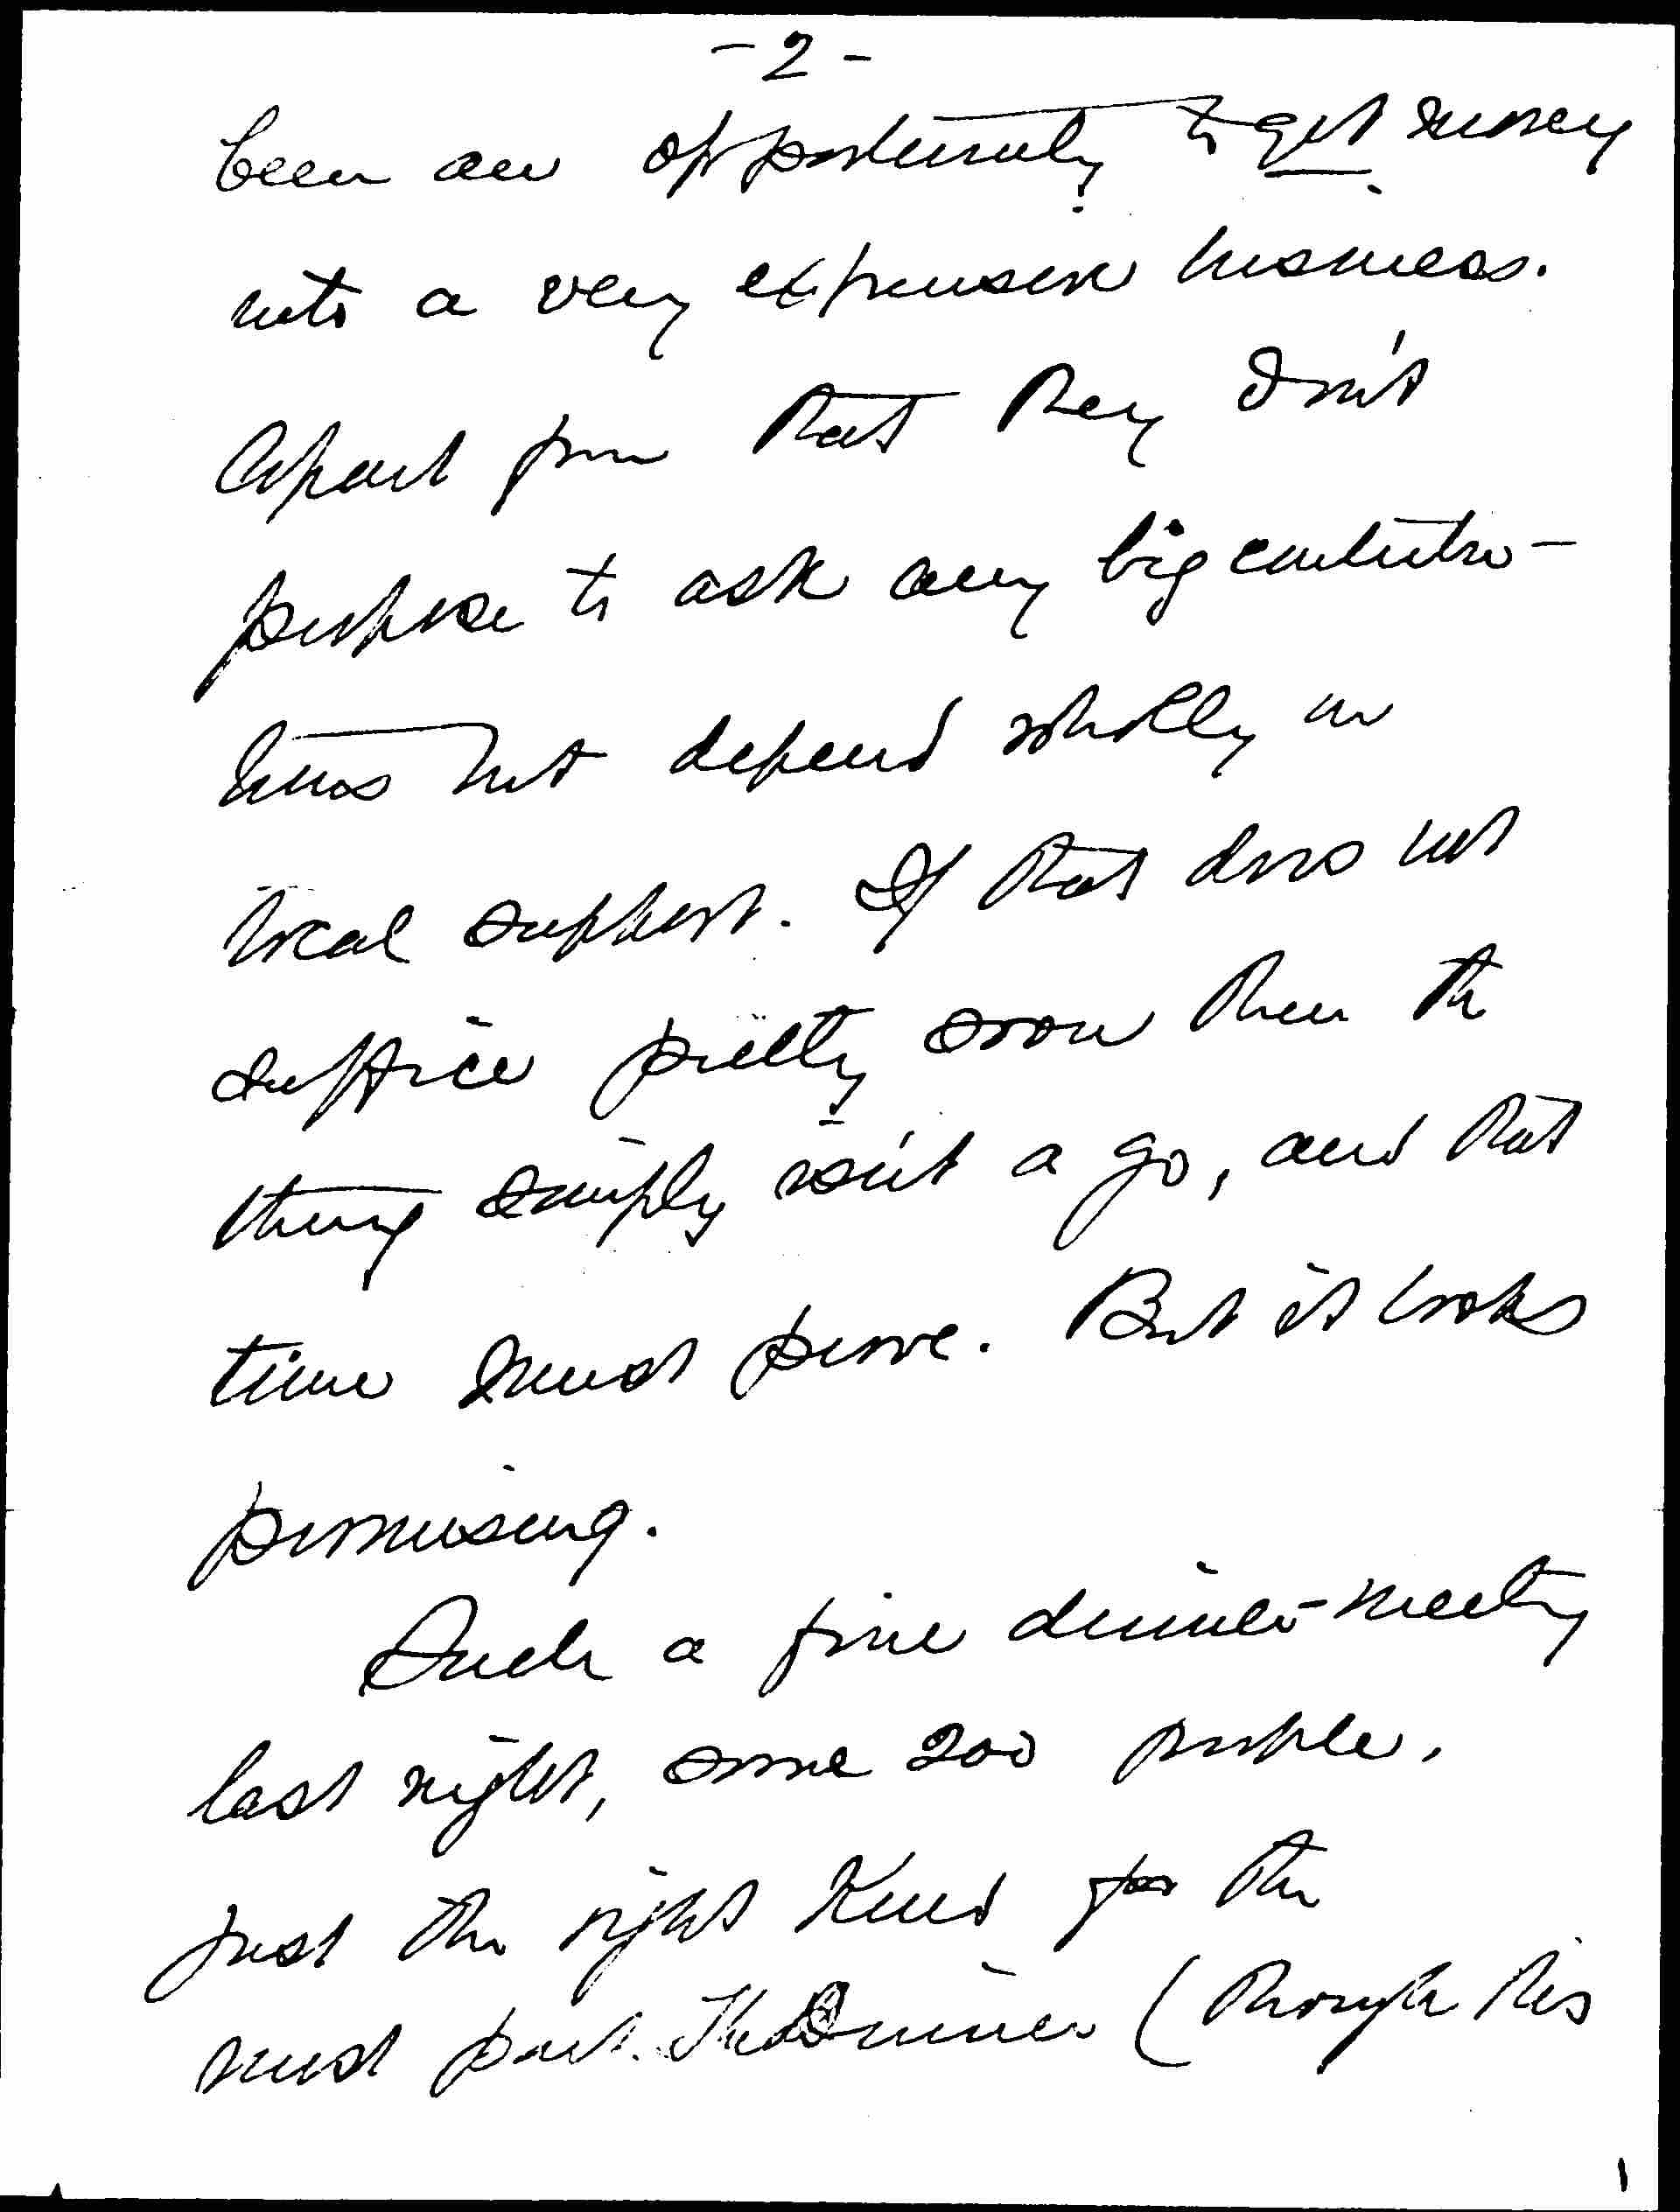 - 2 -
been an opportunity to get money
into a very expensive business.
Apart from that they don't
propose to ask any big contribu-
tions but depend wholly on
local support. If that does not
suffice pretty soon then the
thing simply isn't a go, and that
time must prove. But it looks
promising.
Such a fine dinner-meeting
last night, some 200 people,
just the right kind for the
most part. The Dinner (though this